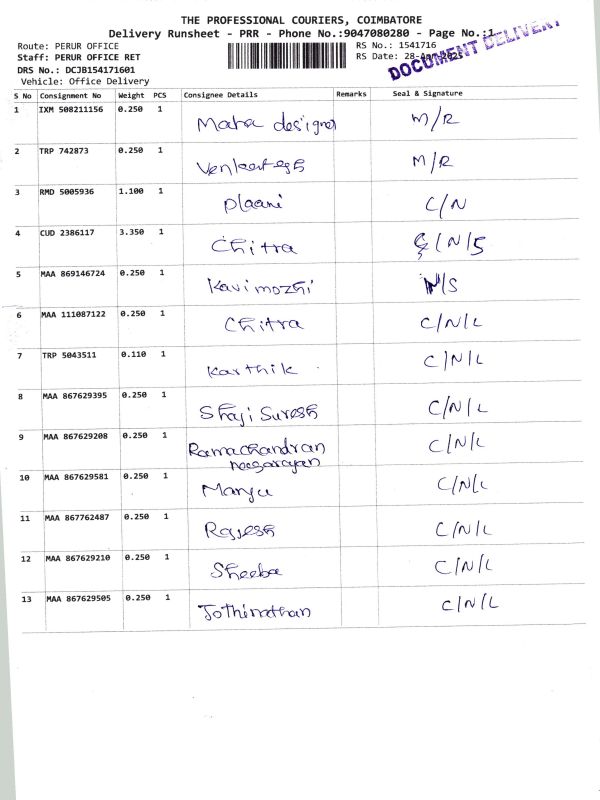 THE PROFESSIONAL COURIERS, COIMBATORE
Delivery Runsheet - PRR - Phone No.:9047080280 - Page No.:1
Route: PERUR OFFICE RS No.: 1541716
Staff: PERUR OFFICE RET RS Date: 28-Apr-2025
DOCUMENT DELIVERY
DRS No.: DCJB154171601
Vehicle: Office Delivery
S No Consignment No Weight PCS Consignee Details Remarks Seal & Signature
1 IXM 508211156 0.250 1 Maha designer M/R
2 TRP 742873 0.250 1 M/R
3 RMD 5005936 1.100 1 Plaani C/N
4 CUD 2386117 3.350 1 Chitra /N/S
5 MAA 869146724 0.250 1 Kavimozhi N/S
6 MAA 111087122 0.250 1 Chitra C/N/L
7 TRP 5043511 0.110 1 Karthik C/N/L
8 MAA 867629395 0.250 1 Shaji Suresh C/N/L
9 MAA 867629208 0.250 1 Ramachandran C/N/L
10 MAA 867629581 0.250 1 Manju C/N/L
11 MAA 867762487 0.250 1 Rajesh C/N/L
12 MAA 867629210 0.250 1 Sheeba C/N/L
13 MAA 867629505 0.250 1 Jothinathan C/N/L